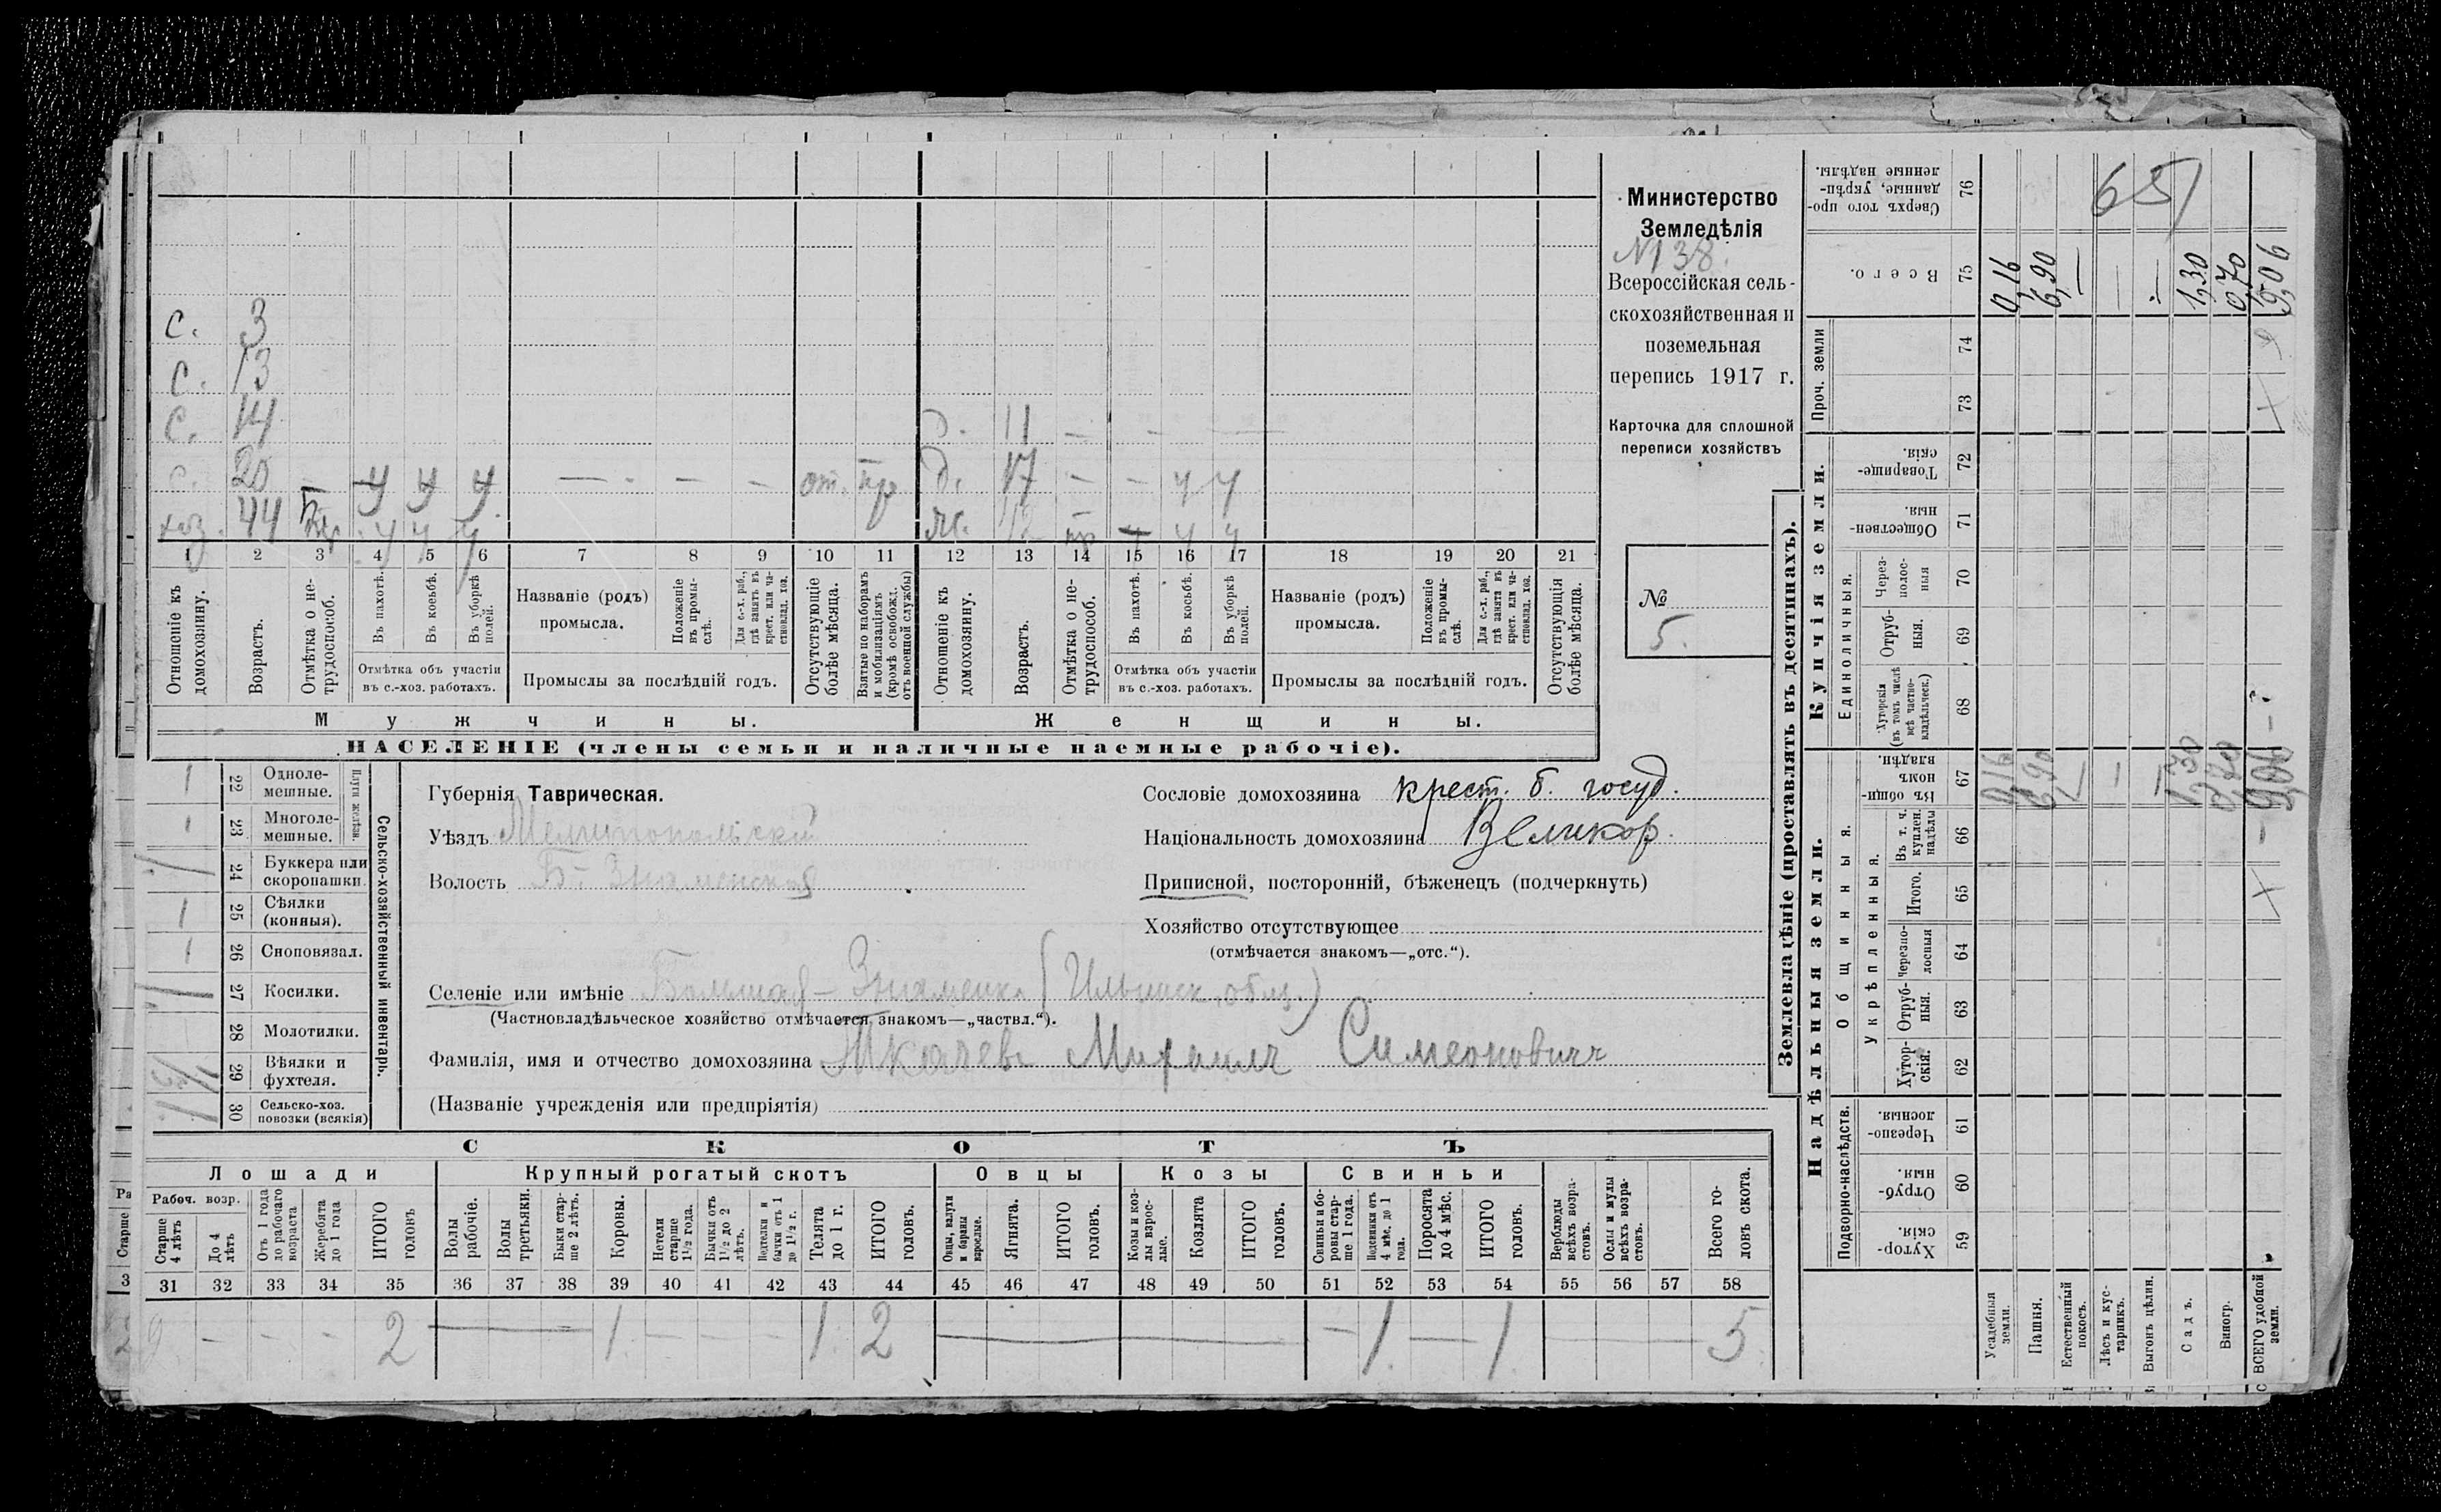 с. 3
с. 13
с. 14 д. 11 — — —
с. 20 — у у у — - - - от. пр д. 17 - - у у
хоз. 44 у у у ж. у у
1 2 3 4 5 6 7 8 9 10 11 12 13 14 15 16 17 18 19 20 21
Отношеніе къ домохозяину.
Возрастъ.
Отмѣтка о не-трудоспособ.
Въ пахотѣ.
Въ косьбѣ.
Въ уборкѣ полей.
Отмѣтка объ участіи
въ с.-хоз. работахъ.
Названіе (родъ)
промысла.
Положеніе въ промы-слѣ.
Для с.-х. раб., гдѣ занятъ въ крест. или ча-стновлад. хоз.
Промыслы за послѣдній годъ.
Отсутствующіе болѣе мѣсяца.
Взятые по наборамъ и мобилизаціямъ (кромѣ освобожд. отъ военной службы)
Отношеніе къ домохозяину.
Возрастъ.
Отмѣтка о не-трудоспособ.
Въ пахотѣ.
Въ косьбѣ.
Въ уборкѣ полей.
Отмѣтка объ участіи
въ с.-хоз. работахъ.
Названіе (родъ)
промысла.
Положеніе въ промы-слѣ.
Для с.-х. раб., гдѣ занята въ крест. или ча-стновлад. хоз.
Промыслы за послѣдній годъ.
Отсутствующія болѣе мѣсяца.
Мужчины.
Женщины.
НАСЕЛЕНІЕ (члены семьи и наличные наемные рабочіе).
Министерство
Земледѣлія
N138.
Всероссійская сель-
скохозяйственная и
поземельная
перепись 1917 г.
Карточка для сплошной
переписи хозяйствъ
№
5.
1 22 Одноле-мешные.
1 23 Многоле-мешные.
Плуги желѣзн.
24 Буккера или скоропашки.
1 25 Сѣялки (конныя).
1 26 Сноповязал.
27 Косилки.
28 Молотилки.
29 Вѣялки и фухтеля.
30 Сельско-хоз. повозки (всякія)
Сельско-хозяйственный инвентарь.
Губернія Таврическая.
Уѣздъ Мелитопольскій
Волость Б. Знаменская
Селеніе или имѣніе Большая-Знаменка (Ильинск. общ.)
(Частновладѣльческое хозяйство отмѣчается знакомъ—„частвл.“).
Фамилія, имя и отчество домохозяина Ткачевъ Михаилъ Симеоновичъ
(Названіе учрежденія или предпріятія)
Сословіе домохозяина крест. б. госуд.
Національность домохозяина Великор.
Приписной, посторонній, бѣженецъ (подчеркнуть)
Хозяйство отсутствующее
(отмѣчается знакомъ—„отс.“).
СКОТЪ
Лошади Крупный рогатый скотъ Овцы Козы Свиньи
Рабоч. возр.
Старше 4 лѣтъ
До 4 лѣтъ
Отъ 1 года до рабочаго возраста
Жеребята до 1 года
ИТОГО головъ
Волы рабочіе.
Волы третьяки.
Быки стар-ше 2 лѣтъ.
Коровы.
Нетели старше 1½ года.
Бычки отъ 1½ до 2 лѣтъ.
Нетелки и бычки отъ 1 до 1½ г.
Телята до 1 г.
ИТОГО головъ.
Овцы, валухи и бараны взрослые.
Ягнята.
ИТОГО головъ.
Козы и коз-лы взрос-лые.
Козлята
ИТОГО головъ.
Свиньи и бо-ровы стар-ше 1 года.
Подсвинки отъ 4 мѣс. до 1 года.
Поросята до 4 мѣс.
ИТОГО головъ.
Верблюды всѣхъ возра-стовъ.
Ослы и мулы всѣхъ возра-стовъ.
Всего го-ловъ скота.
31 32 33 34 35 36 37 38 39 40 41 42 43 44 45 46 47 48 49 50 51 52 53 54 55 56 57 58
2 - - - 2 — 1 - - - 1 2 — — — - 1 — 1 — 5
Землевладѣніе (проставлять въ десятинахъ).
Надѣльныя земли.
Купчія земли.
Проч. земли
Подворно-наслѣдств.
Общинныя.
Укрѣпленныя.
Единоличныя.
Сверхъ того про-данные, укрѣп-ленные надѣлы. 76
651
Всего. 75 0,16 6,90 — — — 1,30 0,70 9,06
74
73
Товарище-скія. 72
Обществен-ныя. 71
Через-полос-ныя 70
Отруб-ныя. 69
Хуторскія (въ томъ числѣ всѣ частно-владѣльческ.) 68
Въ общи-номъ владѣн. 67 0,16 6,90 — — — 1,30 0,70 9,06
Въ т. ч. куплен. надѣлы 66
Итого. 65
Черезпо-лосныя 64
Отруб-ныя. 63
Хутор-скія. 62
Черезпо-лосныя. 61
Отруб-ныя. 60
Хутор-скія. 59
Усадебныя земли.
Пашня.
Естественный покосъ.
Лѣсъ и кус-тарникъ.
Выгонъ цѣлин.
Садъ.
Виногр.
ВСЕГО удобной земли.